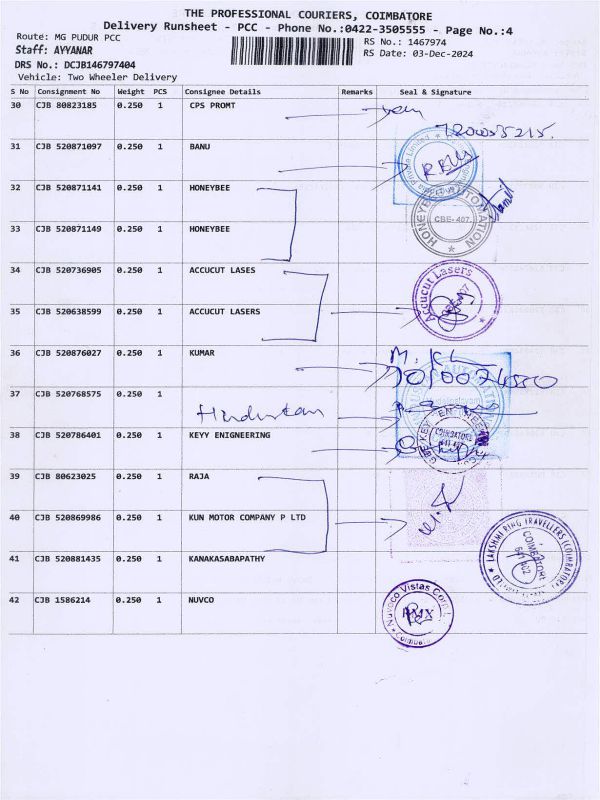 THE PROFESSIONAL COURIERS, COIMBATORE
Delivery Runsheet - PCC - Phone No.:0422-3505555 - Page No.:4
Route: MG PUDUR PCC
RS No.: 1467974
Staff: AYYANAR
RS Date: 03-Dec-2024
DRS No.: DCJB146797404
Vehicle: Two Wheeler Delivery
S No Consignment No Weight PCS Consignee Details Remarks Seal & Signature
30 CJB 80823185 0.250 1 CPS PROMT
31 CJB 520871097 0.250 1 BANU
Private Limited
32 CJB 520871141 0.250 1 HONEYBEE
HONEYBEE AUTOMATION
CBE-407.
33 CJB 520871149 0.250 1 HONEYBEE
34 CJB 520736905 0.250 1 ACCUCUT LASES
Accucut Lasers
35 CJB 520638599 0.250 1 ACCUCUT LASERS
36 CJB 520876027 0.250 1 KUMAR
37 CJB 520768575 0.250 1
Hindustan
38 CJB 520786401 0.250 1 KEYY ENIGNEERING
COIMBATORE
39 CJB 80623025 0.250 1 RAJA
40 CJB 520869986 0.250 1 KUN MOTOR COMPANY P LTD
LAKSHMI RING TRAVELLERS (COIMBATORE)
COIMBATORE
641 402
41 CJB 520881435 0.250 1 KANAKASABAPATHY
42 CJB 1586214 0.250 1 NUVCO
Nuvoco Vistas Corp.
RMX